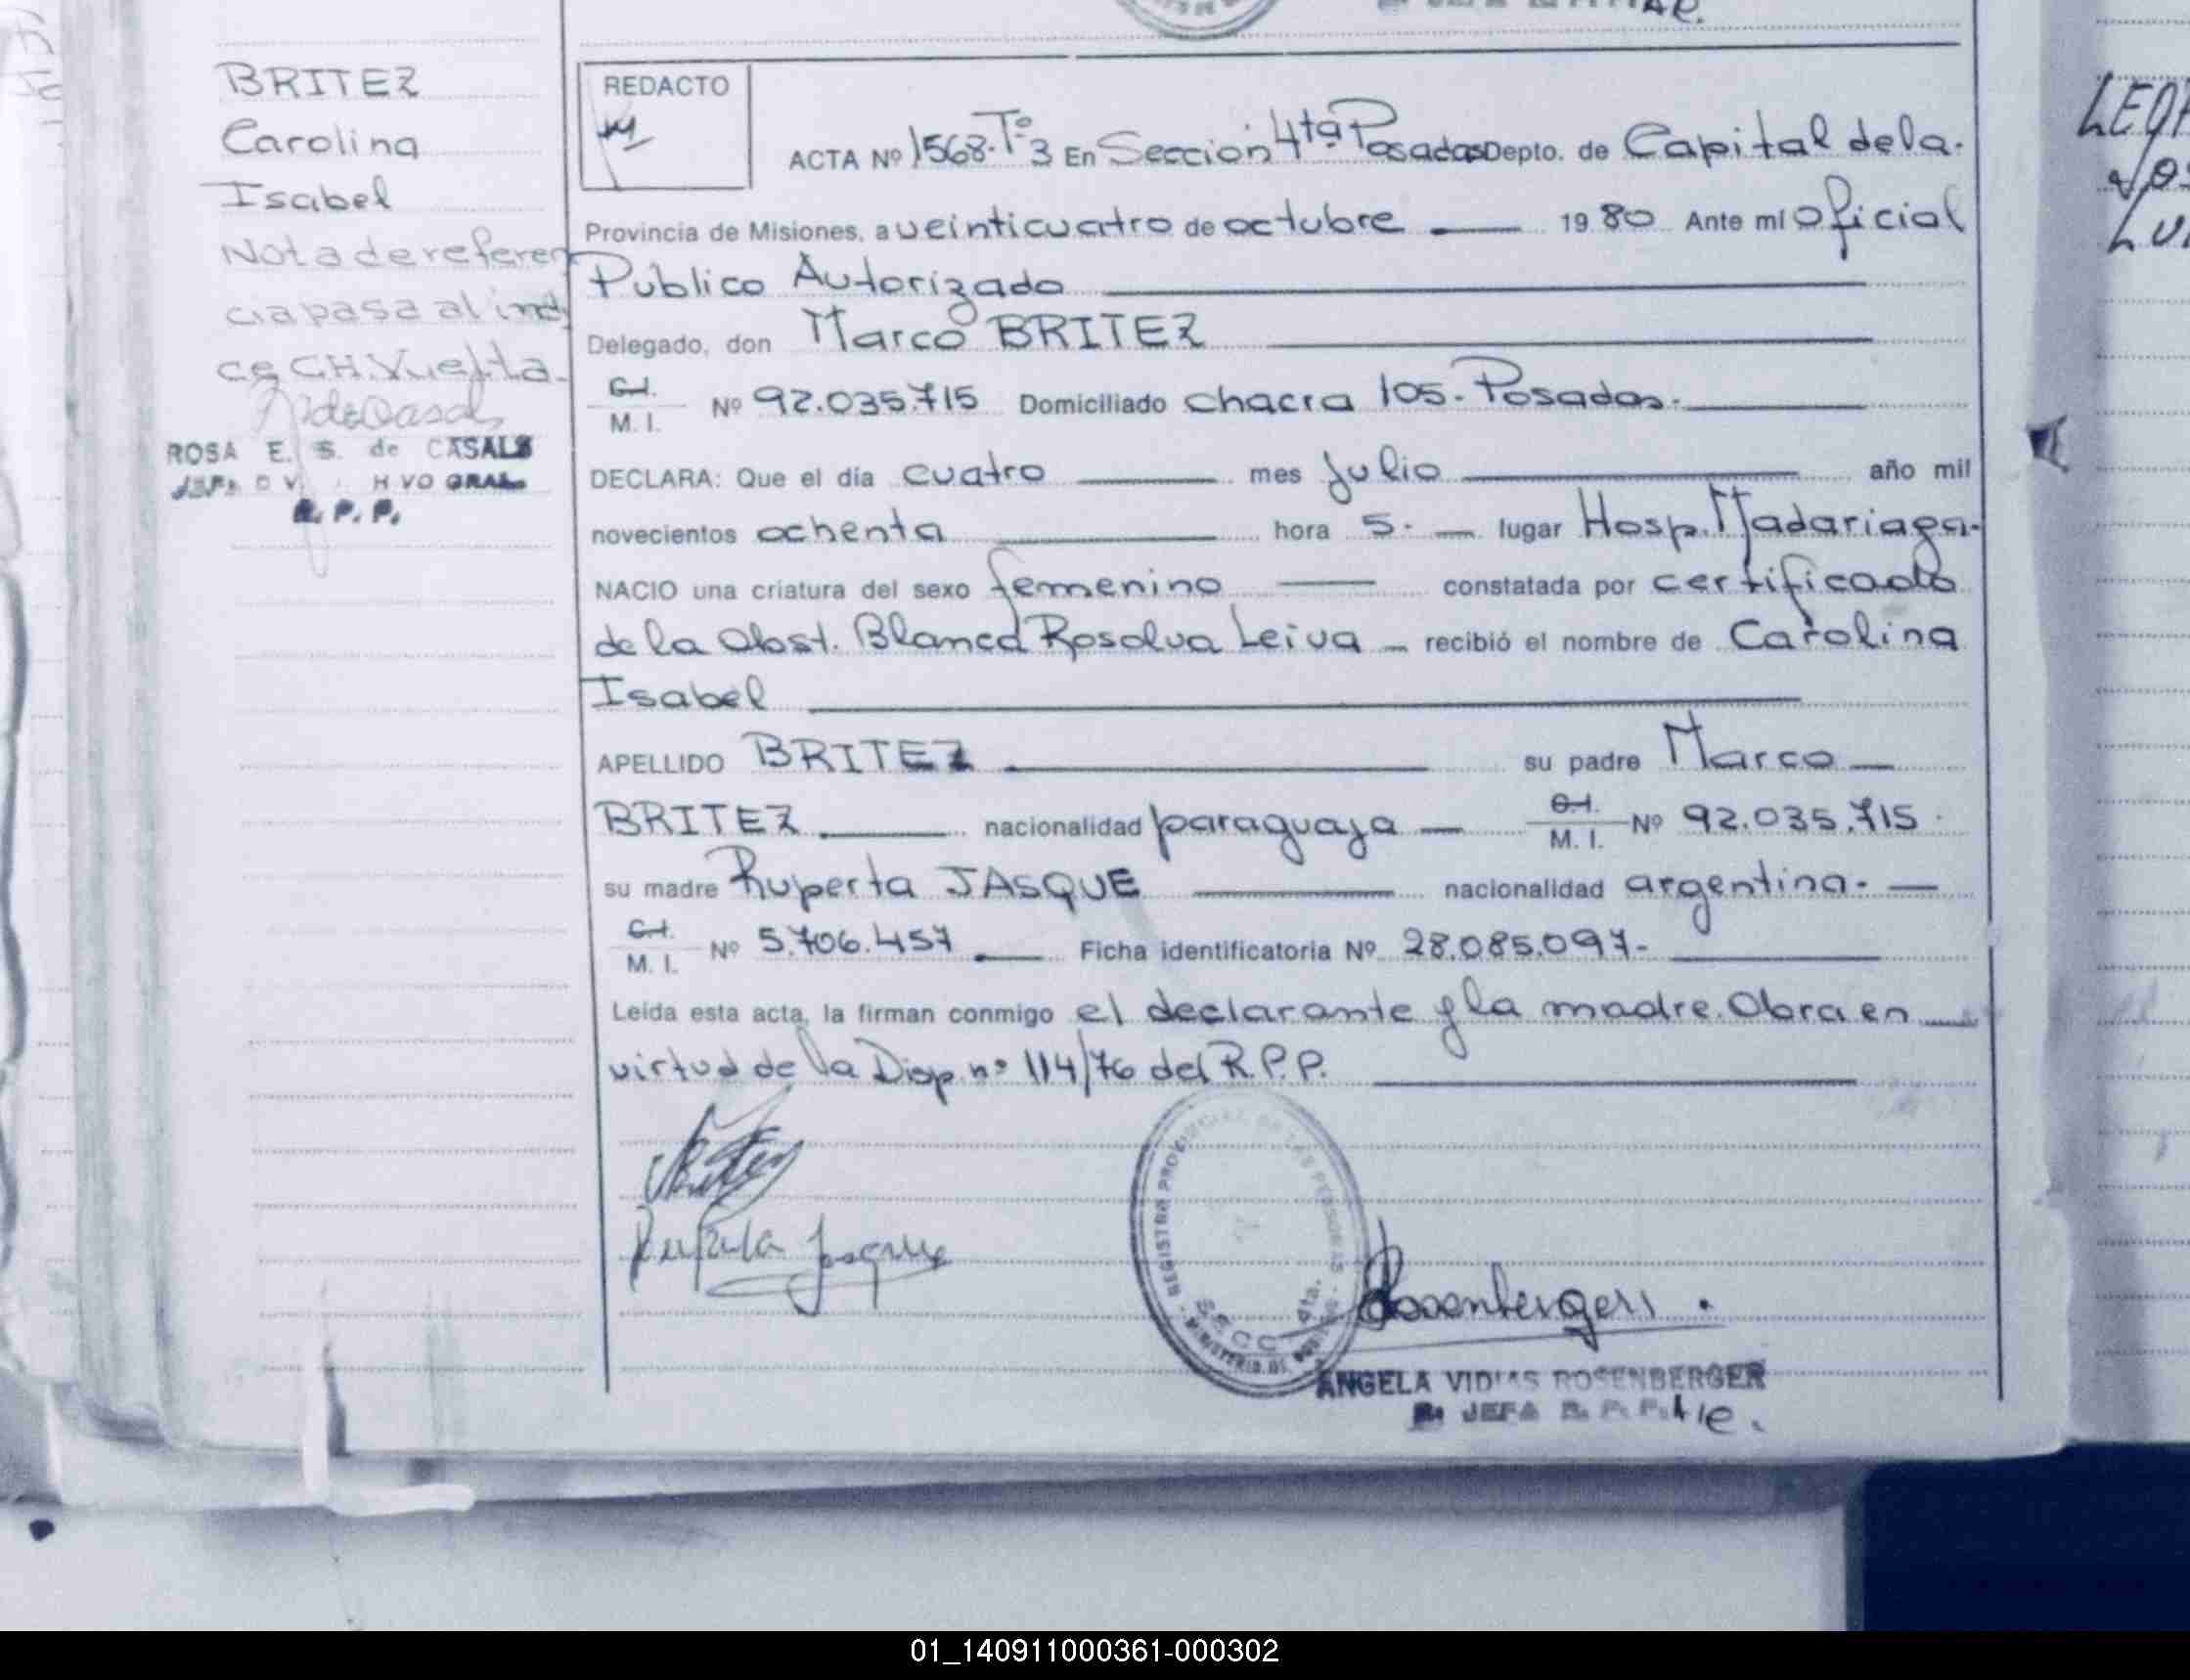 BRITEZ
Carolina
Isabel
Nota de referen
cia pasa al indi
ce CH. Vuelta.
ROSA E. S. de CASALS
R. P. P.
REDACTO
ACTA Nº 1568-Tº3 En Sección 4ta Posadas Depto. de Capital de la.
Provincia de Misiones, a veinticuatro de octubre 1980 Ante mí Oficial
Público Autorizado
Delegado, don Marco BRITEZ
C.I.
M. I. Nº 92.035.715 Domiciliado chacra 105.- Posadas.-
DECLARA: Que el día cuatro mes Julio año mil
novecientos ochenta hora 5.- lugar Hosp. Madariaga.
NACIO una criatura del sexo femenino constatada por certificado
de la Obst. Blanca Rosalva Leiva recibió el nombre de Carolina
Isabel
APELLIDO BRITEZ su padre Marco
BRITEZ nacionalidad paraguaya C.I.
M. I. Nº 92.035.715
su madre Ruperta JASQUE nacionalidad argentina.-
C.I.
M. I. Nº 5.706.457 Ficha identificatoria Nº 28.085.097-
Leída esta acta, la firman conmigo el declarante y la madre. Obra en
virtud de la Disp. nº 114/76 del R.P.P.
Britez
Ruperta Jasque
REGISTRO PROVINCIAL DE LAS PERSONAS
SECC 4ta.
MINISTERIO DE
Rosenberger
ANGELA VIDIAS ROSENBERGER
JEFA R. P. P.
LEOP
JOS
LUI
01_140911000361-000302